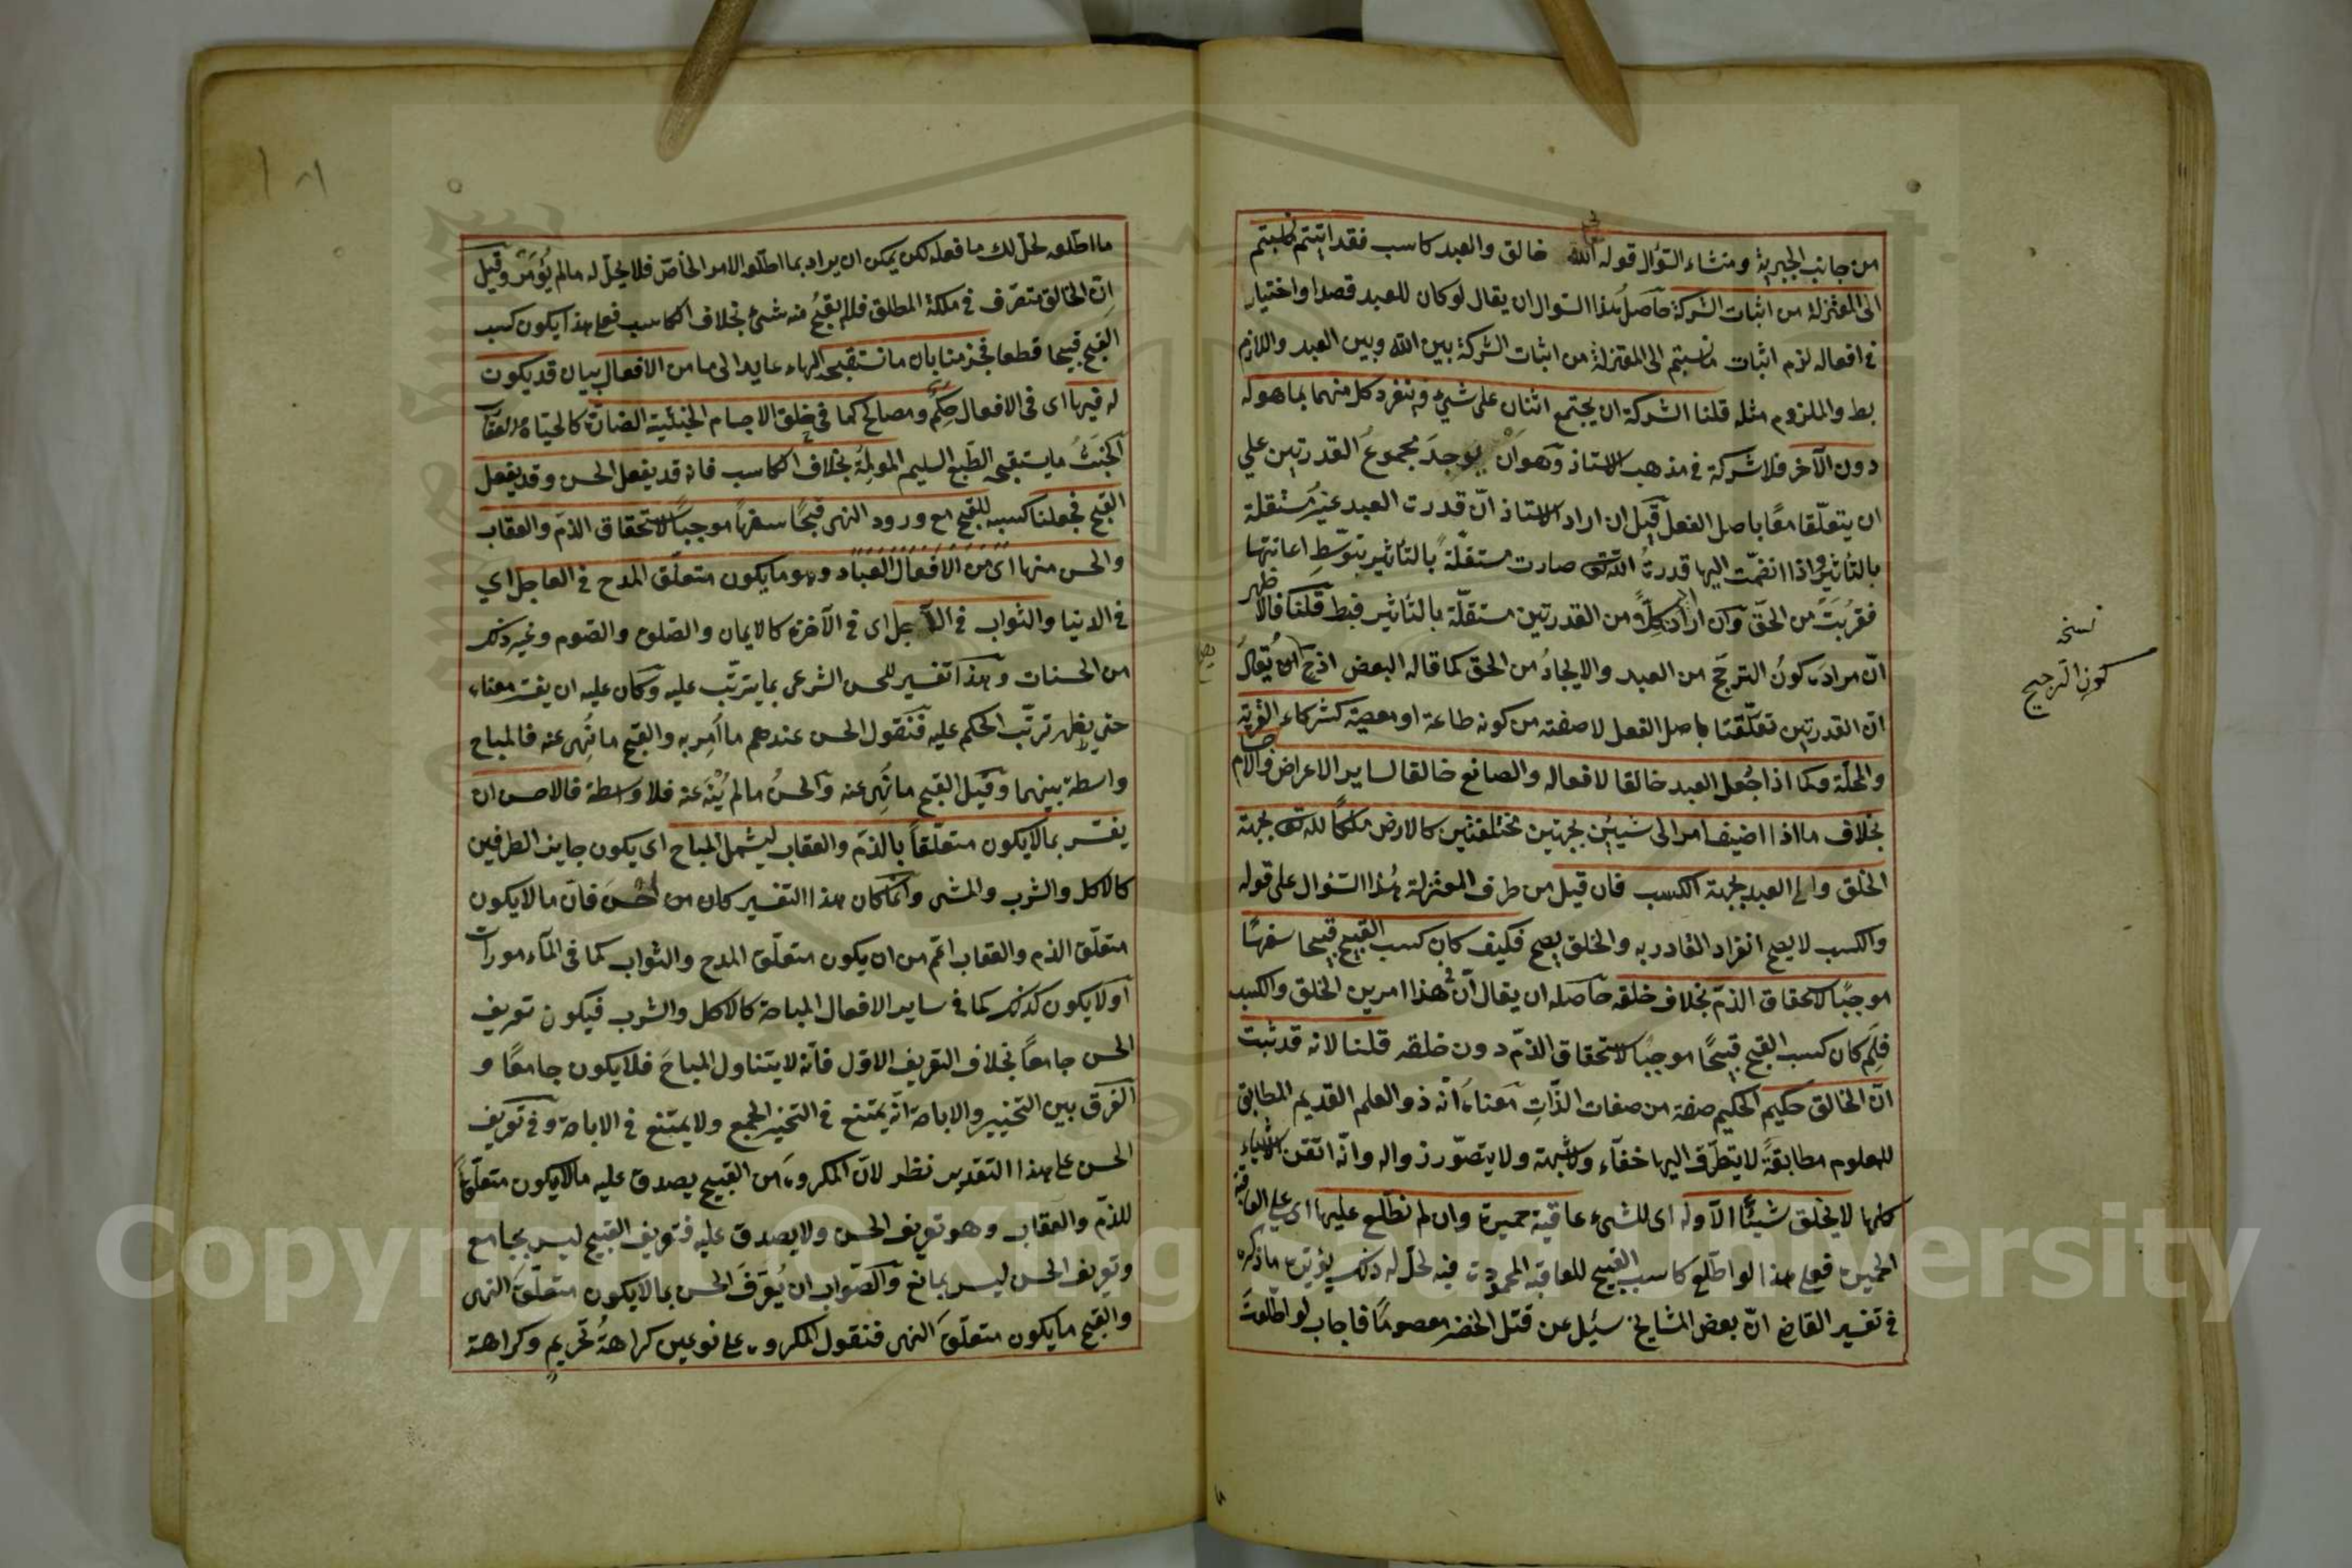 من جانب الجبرية ومنشاء السؤال قوله الله خالق والعبد كاسب فقد اثبتم
الى المعتزلة من اثبات الشركة حاصل هذا السؤال ان يقال لو كان للعبد قصدا واختيار
في افعاله لزم اثبات ما نسبتم الى المعتزلة من اثبات الشركة بين الله وبين العبد واللازم
بط والملزوم مثله قلنا الشركة ان يجتمع اثنان على شيء وينفرد كل منهما بما هو له
دون الآخر فلا شركة في مذهب الاستاذ وهو ان يوجد مجموع القدرتين على
ان يتعلّقا معًا باصل الفعل قيل ان اراد الاستاذ انّ قدرت العبد غير مستقلة
بالتأثير واذا انضمّت اليها قدرتُ الله تعالى صارت مستقلّة بالتأثير بتوسّط اعانتها
فقرُبَت من الحق وان اراد كلًّا من القدرتين مستقلّة بالتأثير فبط قلنا فالاظهر
انّ مراده كون الترجّح من العبد والايجادُ من الحق كما قاله البعض اذ ان يُقال
انّ القدرتين تعلّقتا باصل الفعل لا صفته من كونه طاعة او معصية كشركاء القرية
والمحلّة وكما اذا جُعل العبد خالقا لافعاله والصانع خالقا لساير الاعراض والاجسام
بخلاف ما اذا اضيف امر الى شيئين بجهتين مختلفتين كالارض ملكًا لله تعالى بجهة
الخلق والى العبد بجهة الكسب فان قيل من طرف المعتزلة هذا السؤال على قوله
والكسب لا يصح انفراد القادر به والخلق يصح فكيف كان كسب القبيح قبيحا سفهًا
موجبًا لاستحقاق الذمّ بخلاف خلقه حاصله ان يقال انّ هذا امرين الخلق والكسب
فلِمَ كان كسب القبيح قبيحًا موجبًا لاستحقاق الذمّ دون خلقه قلنا لانه قد ثبت
انّ الخالق حكيم الحكيم صفة من صفات الذّاتِ معناه انّه ذو العلم القديم المطابق
للمعلوم مطابقةً لا يتطرّق اليها خفآء ولا شبهة ولا يتصوّر زواله وانّه اتقن الاشياء
كلها لا يخلق شيئًا الّا وله اى للشىء عاقبة حميدة وان لم نطّلع عليها اى على العاقبة
الحميدة فعلى هذا لو اطّلع كاسب القبيح للعاقبة المحمودة فيه لحلّ له ذلك يؤيّده ما ذكره
في تفسير القاضى انّ بعض المشايخ سئيل عن قتل الخضر معصومًا فاجاب لو اطلعتَ
نسخه
كون الترجيح
ما اطّلعه لحلّ لك ما فعله لكن يمكن ان يراد بما اطّلعه الامر الخاصّ فلا يحلّ له ما لم يُؤمَر وقيل
انّ الخالق متصرّف في ملكه المطلق فلم يقبحْ منه شىءٌ بخلاف الكاسب فعلى هذا يكون كسب
القبيح قبيحا قطعا فجزمنا بان ما نستقبحه الهاء عايد الى ما من الافعال بيان قد يكون
له فيها اى فى الافعال حِكَمٌ ومصالح كما في خلق الاجسام الخبيثة الضارّة كالحيّاة والعقارب
الخبثُ ما يستقبحه الطّبع السليم المولِمُة بخلاف الكاسب فانه قد يفعل الحسن وقد يفعل
القبيح فجعلنا كسبه للقبيح مع ورود النهى قبيحًا سفهًا موجبًا لاستحقاق الذمّ والعقاب
والحسن منها اى من الافعال العباد وهو ما يكون متعلّق المدح في العاجل اي
في الدنيا والثواب في الآجل اى في الآخرة كالايمان والصلوة والصّوم وغير ذلك
من الحسنات وهذا تفسير للحسن الشرعى بما يترتّب عليه وكان عليه ان يفسّر معناه
حتى يظهر ترتّب الحكم عليه فنَقول الحسن عندهم ما اُمِر به والقبيح ما نُهِى عنه فالمباح
واسطة بينهما وقيل القبيح ما نُهِى عنه والحسنُ ما لم يُنْهَ عنه فلا واسطة فالاحسن ان
يفسّر بما لا يكون متعلّقاً بالذمّ والعقاب ليشمل المباح اى يكون جايز الطرفين
كالاكل والشرب والمشى وانما كان هذا التفسير كان من احسن فانّ ما لا يكون
متعلّق الذم والعقاب اعّم من ان يكون متعلّق المدح والثواب كما فى المآمورات
اولا يكون كذلك كما في ساير الافعال المباحة كالاكل والشرب فيكون تعريف
الحسن جامعًا بخلاف التعريف الاول فانّه لا يتناول المباحَ فلا يكون جامعًا و
الفرق بين التخيير والاباحة انّه يمتنع في التخيير الجمع ولا يمتنع في الاباحة وفي تعريف
الحسن على هذا التقدير نظر لانّ المكروه من القبيح يصدق عليه ما لا يكون متعلّقاً
للذمّ والعقاب وهو تعريف الحسن ولا يصدق عليه فتعريف القبيح ليس بجامع
وتعريف الحسن ليس بمانع والصّواب ان يُعرَّف الحسن بما لا يكون متعلّقَ النهى
والقبيح ما يكون متعلّقَ النهى فنقول المكروه على نوعين كراهةُ تحريمٍ وكراهة
Copyright © King Saud University